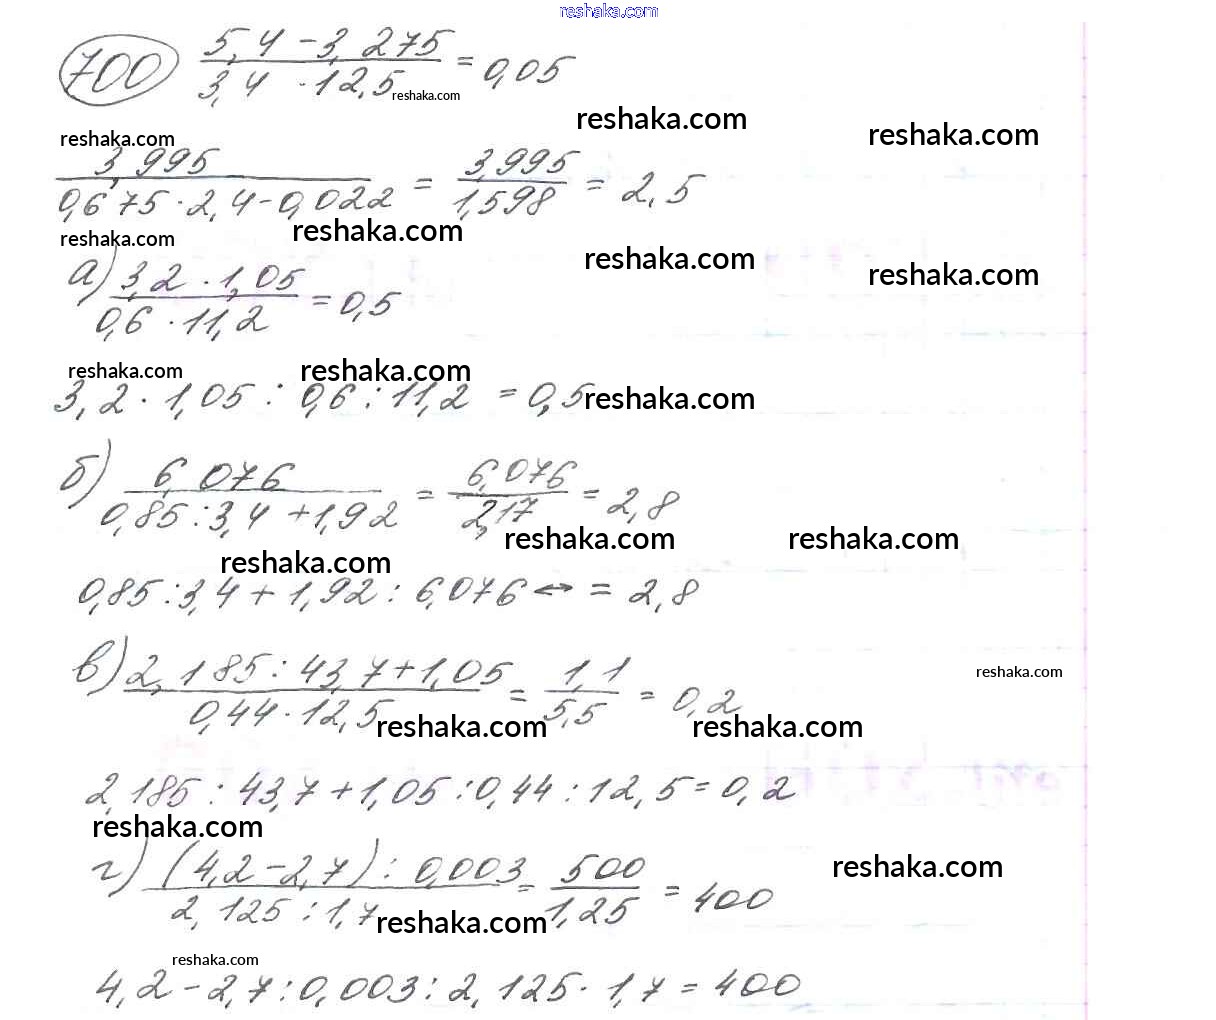 reshaka.com
700 (5,4 - 3,275)/(3,4 · 12,5) = 0,05
reshaka.com
reshaka.com
reshaka.com
reshaka.com
3,995/(0,675 · 2,4 - 0,022) = 3,995/1,598 = 2,5
reshaka.com
reshaka.com
reshaka.com
reshaka.com
а) (3,2 · 1,05)/(0,6 · 11,2) = 0,5
reshaka.com
reshaka.com
3,2 · 1,05 : 0,6 : 11,2 = 0,5
reshaka.com
б) 6,076/(0,85 : 3,4 + 1,92) = 6,076/2,17 = 2,8
reshaka.com
reshaka.com
reshaka.com
0,85 : 3,4 + 1,92 : 6,076 ↔ = 2,8
в) (2,185 : 43,7 + 1,05)/(0,44 · 12,5) = 1,1/5,5 = 0,2
reshaka.com
reshaka.com
reshaka.com
2,185 : 43,7 + 1,05 : 0,44 : 12,5 = 0,2
reshaka.com
г) ((4,2 - 2,7) : 0,003)/(2,125 : 1,7) = 500/1,25 = 400
reshaka.com
reshaka.com
reshaka.com
4,2 - 2,7 : 0,003 : 2,125 · 1,7 = 400